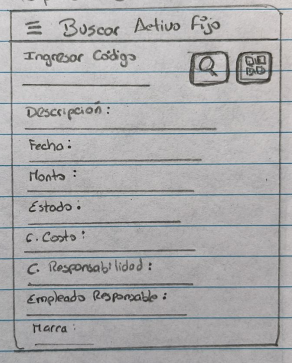 Buscar Activo Fijo
Ingresar Código
Descripción:
Fecha:
Monto:
Estado:
C. Costo:
C. Responsabilidad:
Empleado Responsable:
Marca: